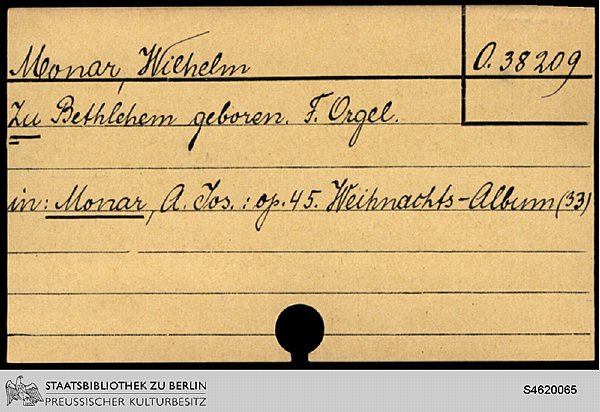 Monar, Wilhelm
O. 38209
Zu Bethlehem geboren. F. Orgel.
in: Monar, A. Jos.: op. 45. Weihnachts-Album (33)
STAATSBIBLIOTHEK ZU BERLIN
PREUSSISCHER KULTURBESITZ
S4620065